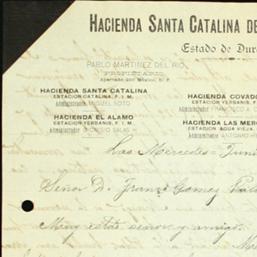 HACIENDA SANTA CATALINA DE
Estado de Dur
PABLO MARTINEZ DEL RIO
PROPIETARIO
HACIENDA SANTA CATALINA
ESTACION CATALINA, F. I. M.
Administrador MIGUEL SOTO
HACIENDA EL ALAMO
ESTACION YERBANIS, F. I. M.
Administrador DIONISIO SALAS
HACIENDA COVADO
ESTACION YERBANIS,
Administrador FRANCISCO
HACIENDA LAS MER
ESTACION AGUA VIEJA,
Administrador ANTONIO
Las Mercedes, Juni
Señor D. Franco Gomez Pala
Muy estdo señor y amigo: